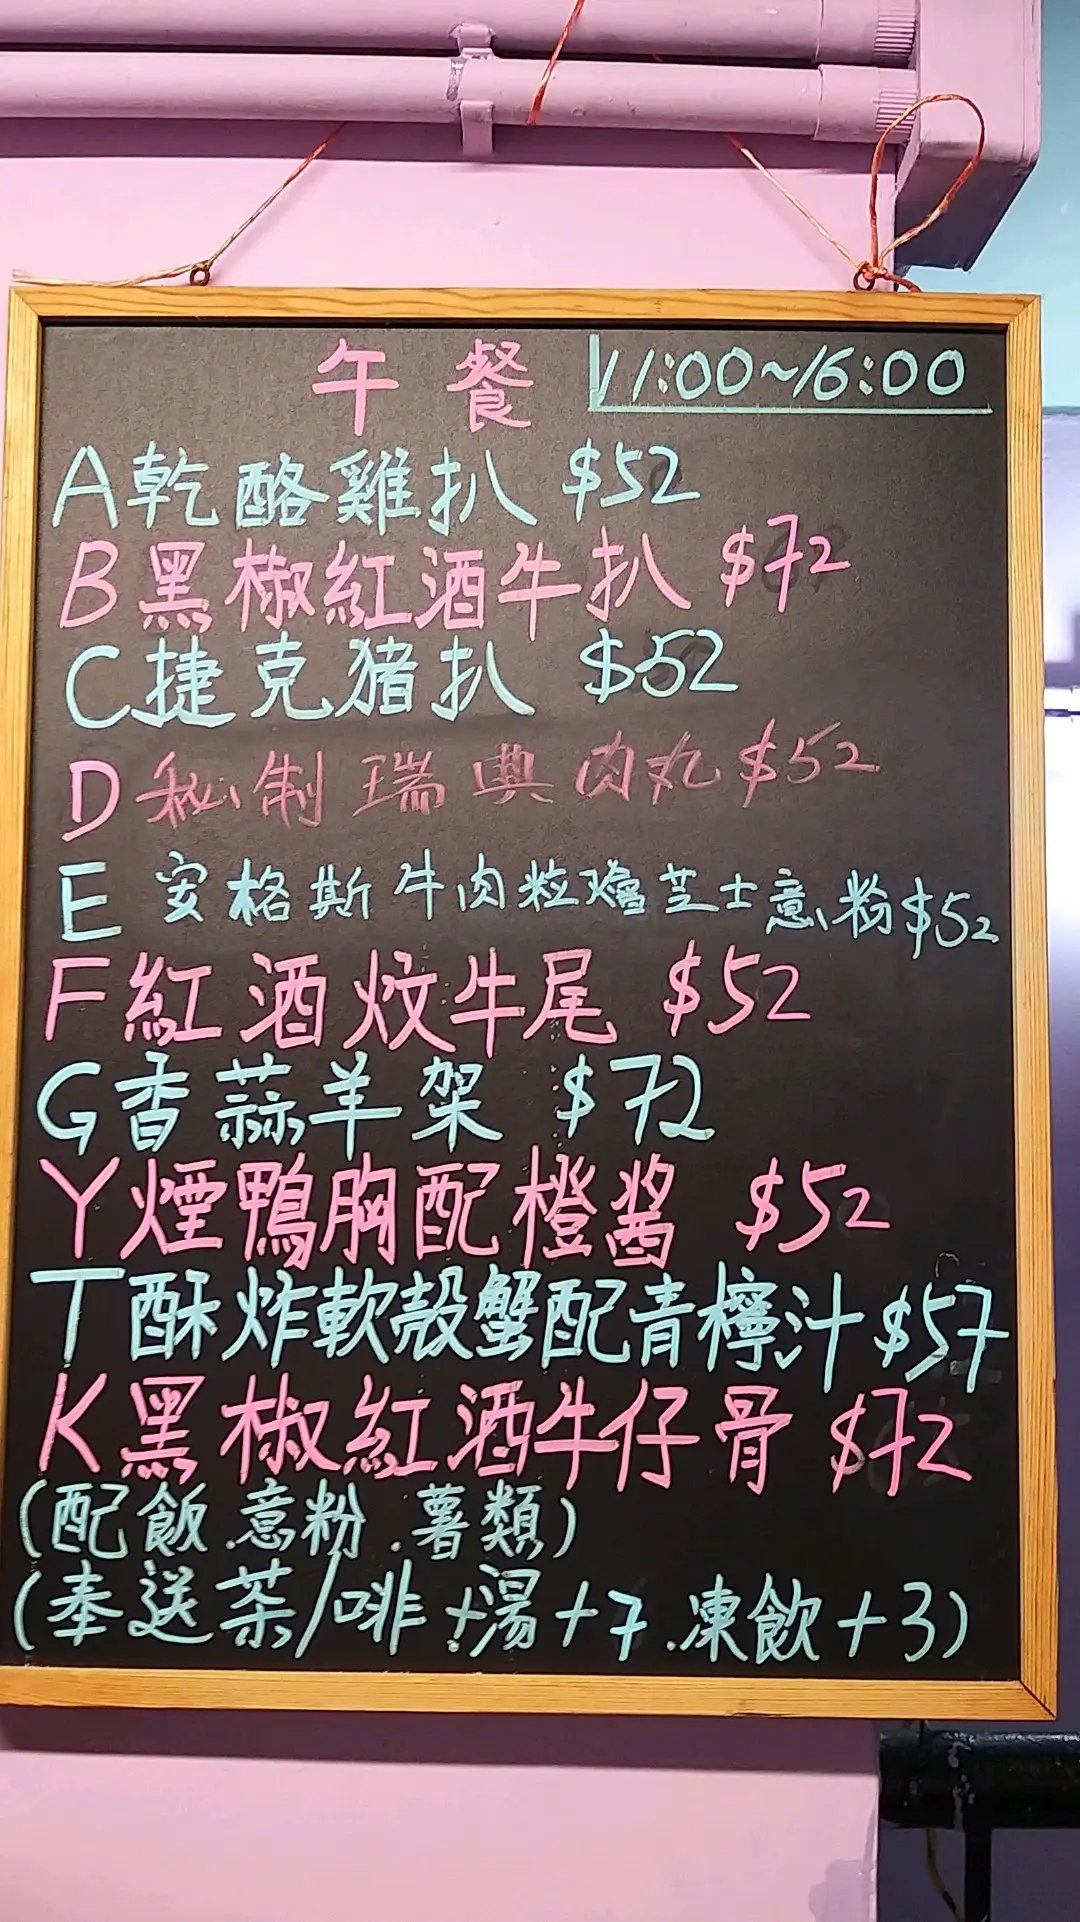 午餐 11:00~16:00
A乾酪雞扒 $52
B黑椒紅酒牛扒 $72
C捷克豬扒 $52
D秘制瑞典肉丸 $52
E 安格斯牛肉粒燴芝士意粉 $52
F紅酒炆牛尾 $52
G香蒜羊架 $72
Y煙鴨胸配橙酱 $52
T酥炸軟殼蟹配青檸汁 $57
K黑椒紅酒牛仔骨 $72
(配飯.意粉.薯類)
(奉送茶/啡+湯+7.凍飲+3)